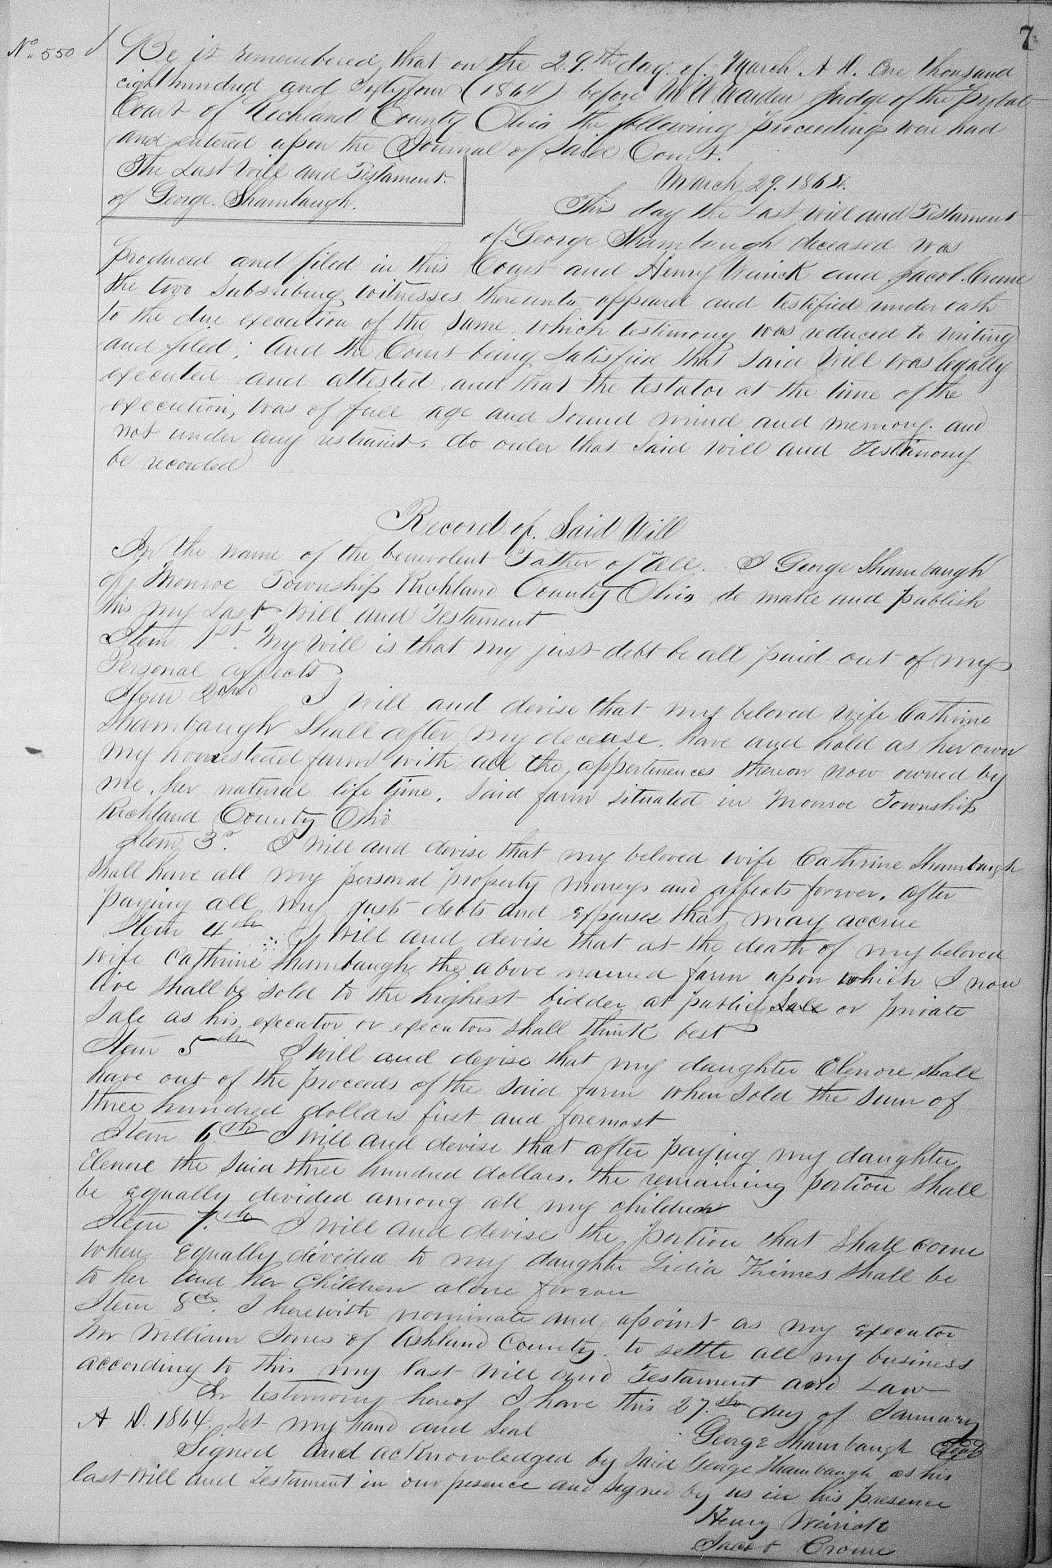 7
No. 550
Be it remembered, that on the 29th day of March A.D. One thousand
eight hundred and Sixty four (1864) before Judge of the Probate
Court of Richland County Ohio the following proceedings were had
and entered upon the Journal of said Court.
The Last Will and Testament
of George Shambaugh.
March 29, 1864.
This day the Last Will and Testament
of George Shambaugh deceased was
produced and filed in this Court and Henry Weirick and Jacob Crome
the two Subscribing witnesses thereunto appeared and testified under oath
to the due execution of the same, which testimony was reduced to writing
and filed; And the Court being Satisfied that said Will was legally
executed and attested and that the testator at the time of the
execution, was of full age and sound mind and memory, and
not under any restraint, do order that said will and Testimony
be recorded
Record of Said Will
In the name of the benevolent Father of All. I George Shambaugh
of Monroe Township Richland County Ohio do make and publish
this my Last Will and Testament
Item 1st. My will is that my just debt be all paid out of my
Personal affects
Item 2nd I will and devise that my beloved wife Cathrine
Shambaugh Shall after my decease, have and hold as her own
my homestead farm with all the appertinences thereon now owned by
me, her natural life time, said farm situated in Monroe Township
Richland County Ohio
Item 3d. I will and devise that my beloved wife Cathrine Shambaugh
Shall have all my personal property moneys and affects forever, after
paying all my just debts and Expenses that may accrue
Item 4th. I will and devise that at the death of my beloved
wife Cathrine Shambaugh, the above named farm upon which I now
live shall be sold to the highest bidder at public sale or private
Sale as his executor or executors shall think best
Item 5th I will and devise that my daughter Elenore shall
have out of the proceeds of the said farm when sold the sum of
three hundred dollars first and foremost
Item 6th I will and devise that after paying my daughter
Elenore the said three hundred dollars, the remaining portion shall
be equally devided among all my children
Item 7th I will and devise the portion that shall come
when Equally divided to my daughter Lidia shall be
to her and her children alone forever
Item 8th. I herewith nominate and apoint as my Executor
Mr William Jones of Ashland County to settle all my business
according to this my last Will and Testament and Law
In testimony hereof I have this 27th day of January
A.D. 1864, Set my hand and Seal
George Shambaugh Seal
Signed and acknowledged by said George Shambaugh as his
last Will and Testament in our presence and signed by us in his presence
Henry Weirick
Jacob Crome